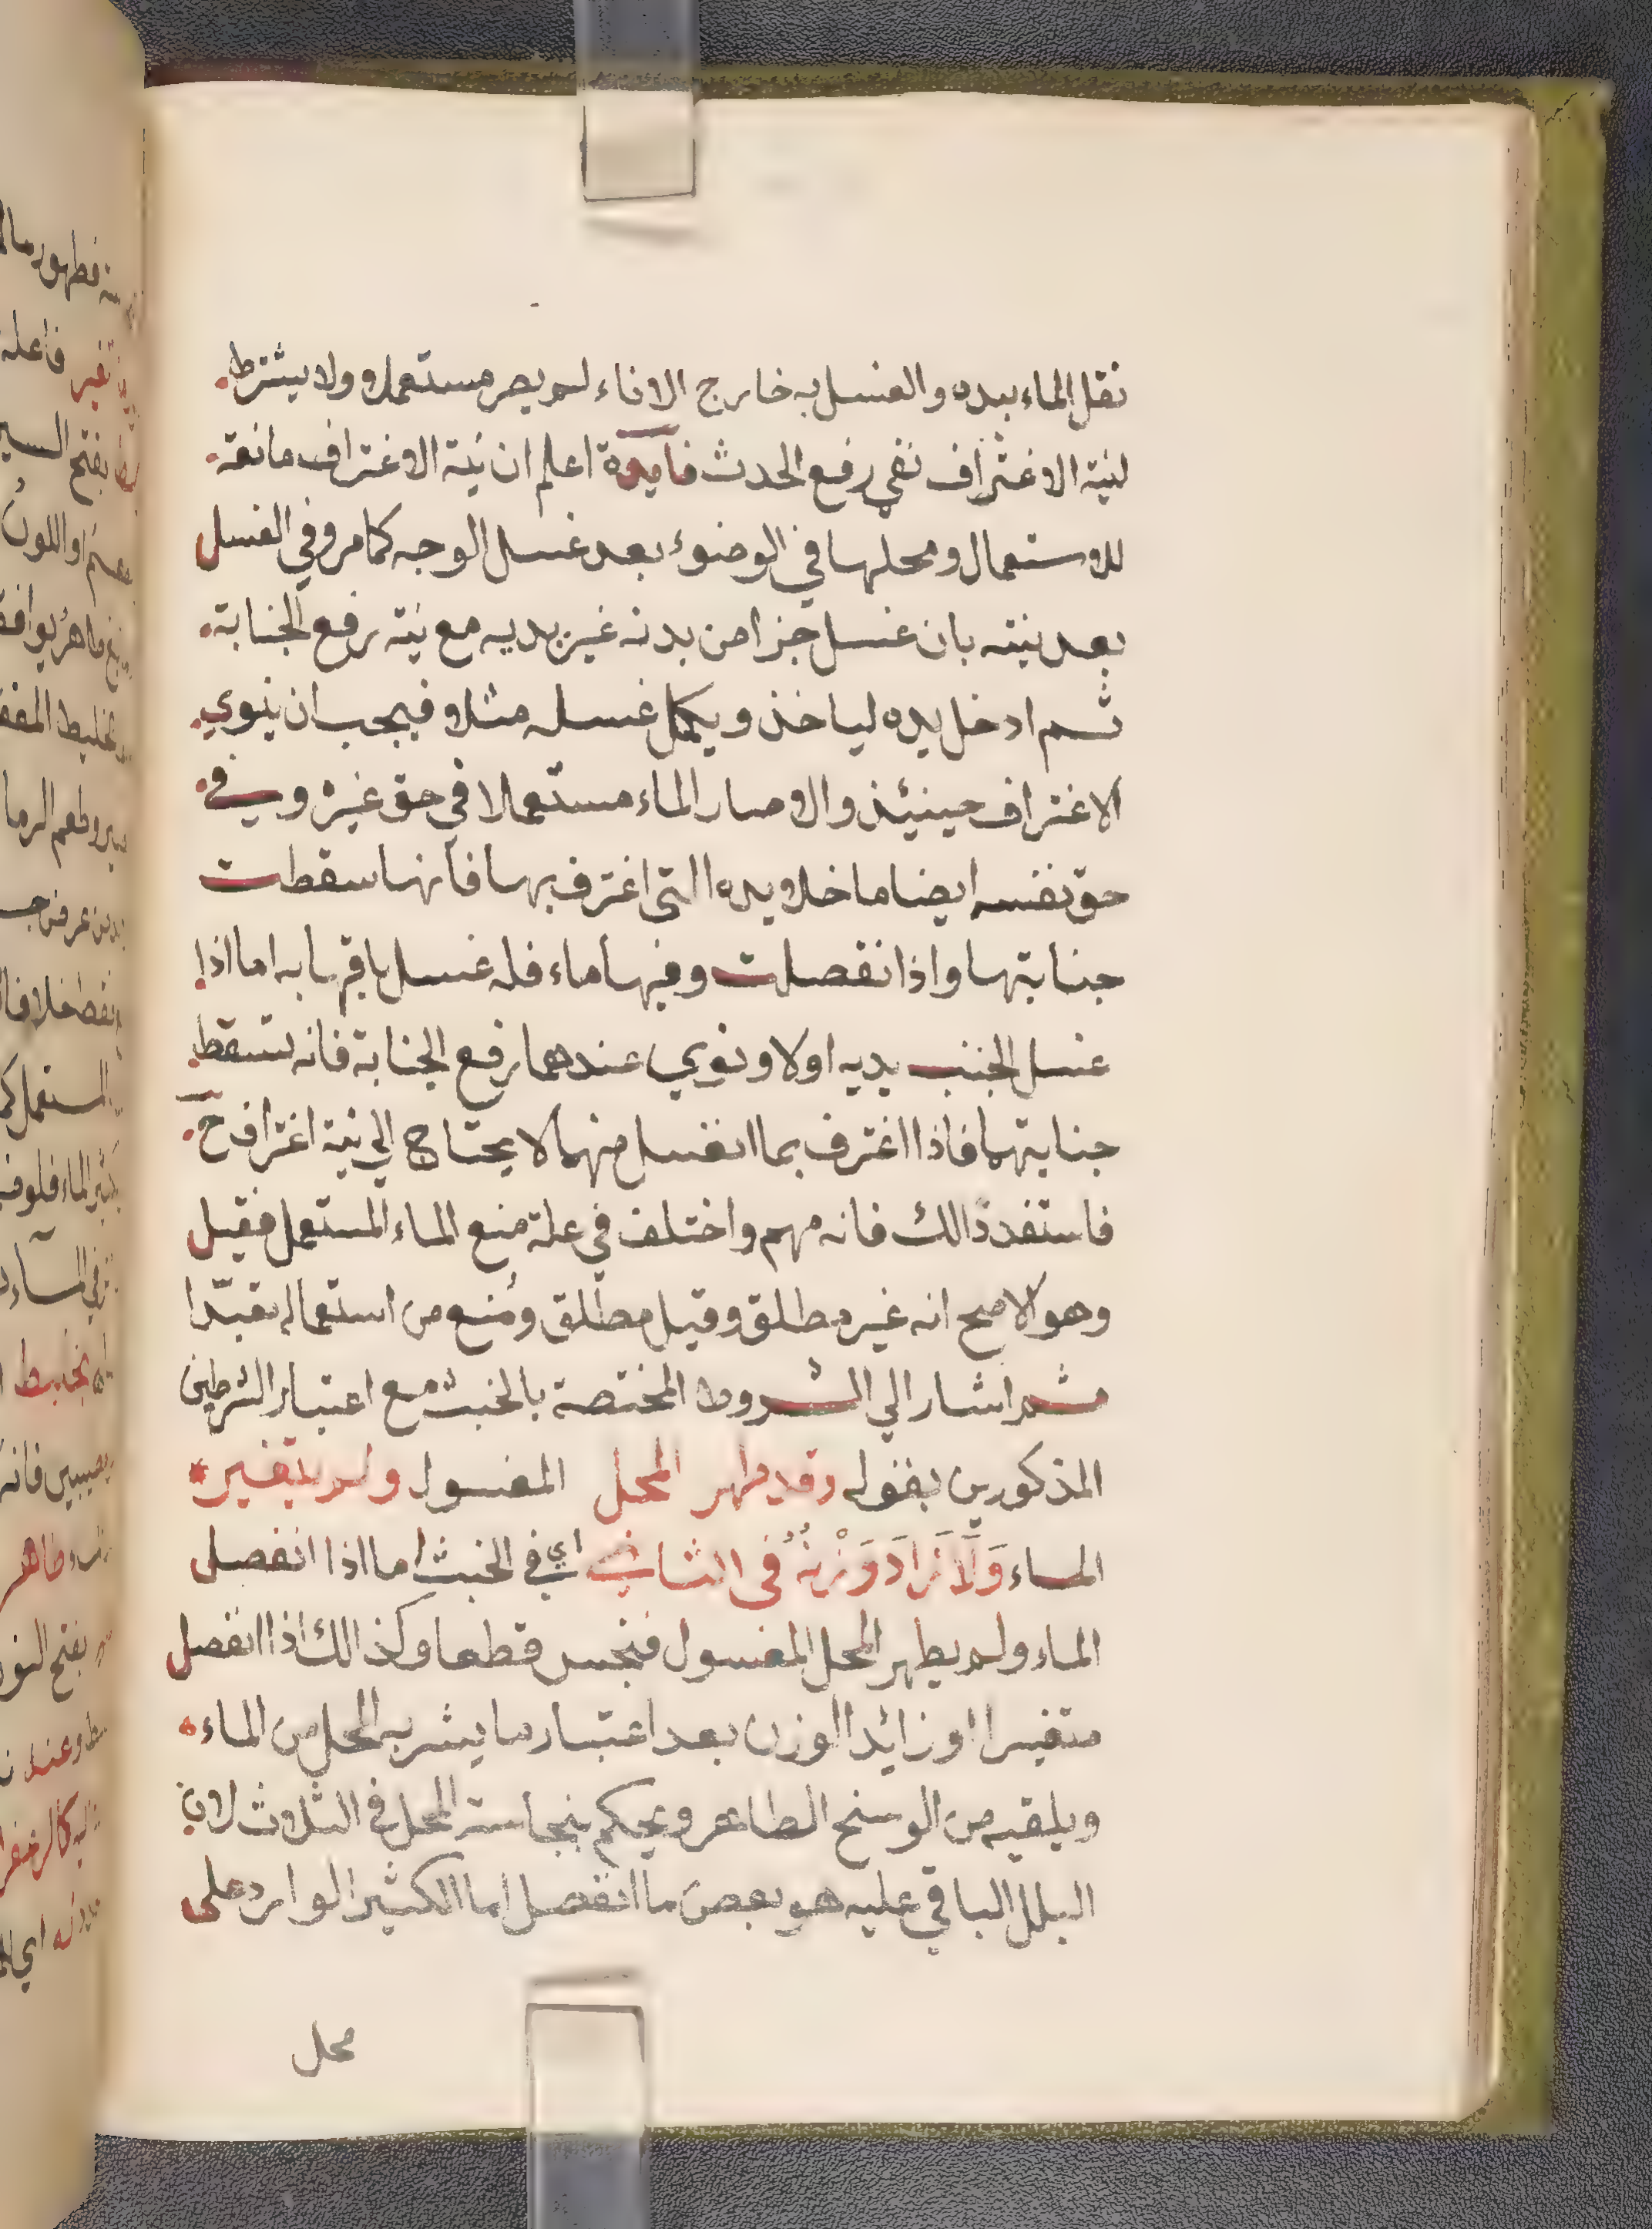 نقل الماء بيده والغسل به خارج الاناء لم يصر مستعملا ولا يشترط
لنية الاغتراف نفي رفع الحدث فايدة اعلم ان نية الاغتراف مانعة
للاستعمال ومحلها في الوضوء بعد غسل الوجه كما مر وفي الغسل
بعد نيته بان غسل جزا من بدنه غير يديه مع نية رفع الجنابة
ثم ادخل يده لياخذ ويكمل غسله مثلا فيجب ان ينوي
الاغتراف حينيئذ والا صار الماء مستعملا في حق غيره وفي
حق نفسه ايضا ما خلا يده التي اغترف بها فانها سقطت
جنابتها واذا نفصلت وفيها ماء فله غسل باقيها به اما اذا
غسل الجنب يديه اولا ونوي عندهما رفع الجنابة فانه تسقط
جنابتهما فاذا اغترف بما انغسل منهما لا يحتاج الي نية اغتراف ح
فاستفد ذالك فانه مهم واختلف في علة منع الماء المستعمل فقيل
وهو الاصح انه غير مطلق وقيل مطلق ومُنع من استعماله تعبّدا
ثم اشار الي الشروط المختصة بالخبث مع اعتبار الشرطين
المذكورين بقوله وقد طهر المحل المغسول ولم يتغير
الماء وَلَا زَادَ وَزْنُهُ في الثاني اي في الخبث اما اذا انفصل
الماء ولم يطهر المحل المغسول فنجس قطعا وكذالك اذا انفصل
متغيرا او زائدا الوزن بعد اعتبار ما يشربه المحل من الماء
ويلقيه من الوسخ الطاهر ويحكم بنجاسة المحل في الثلاث لان
البلل الباقي عليه هو بعض ما انفصل اما الكثير الوارد على
محل